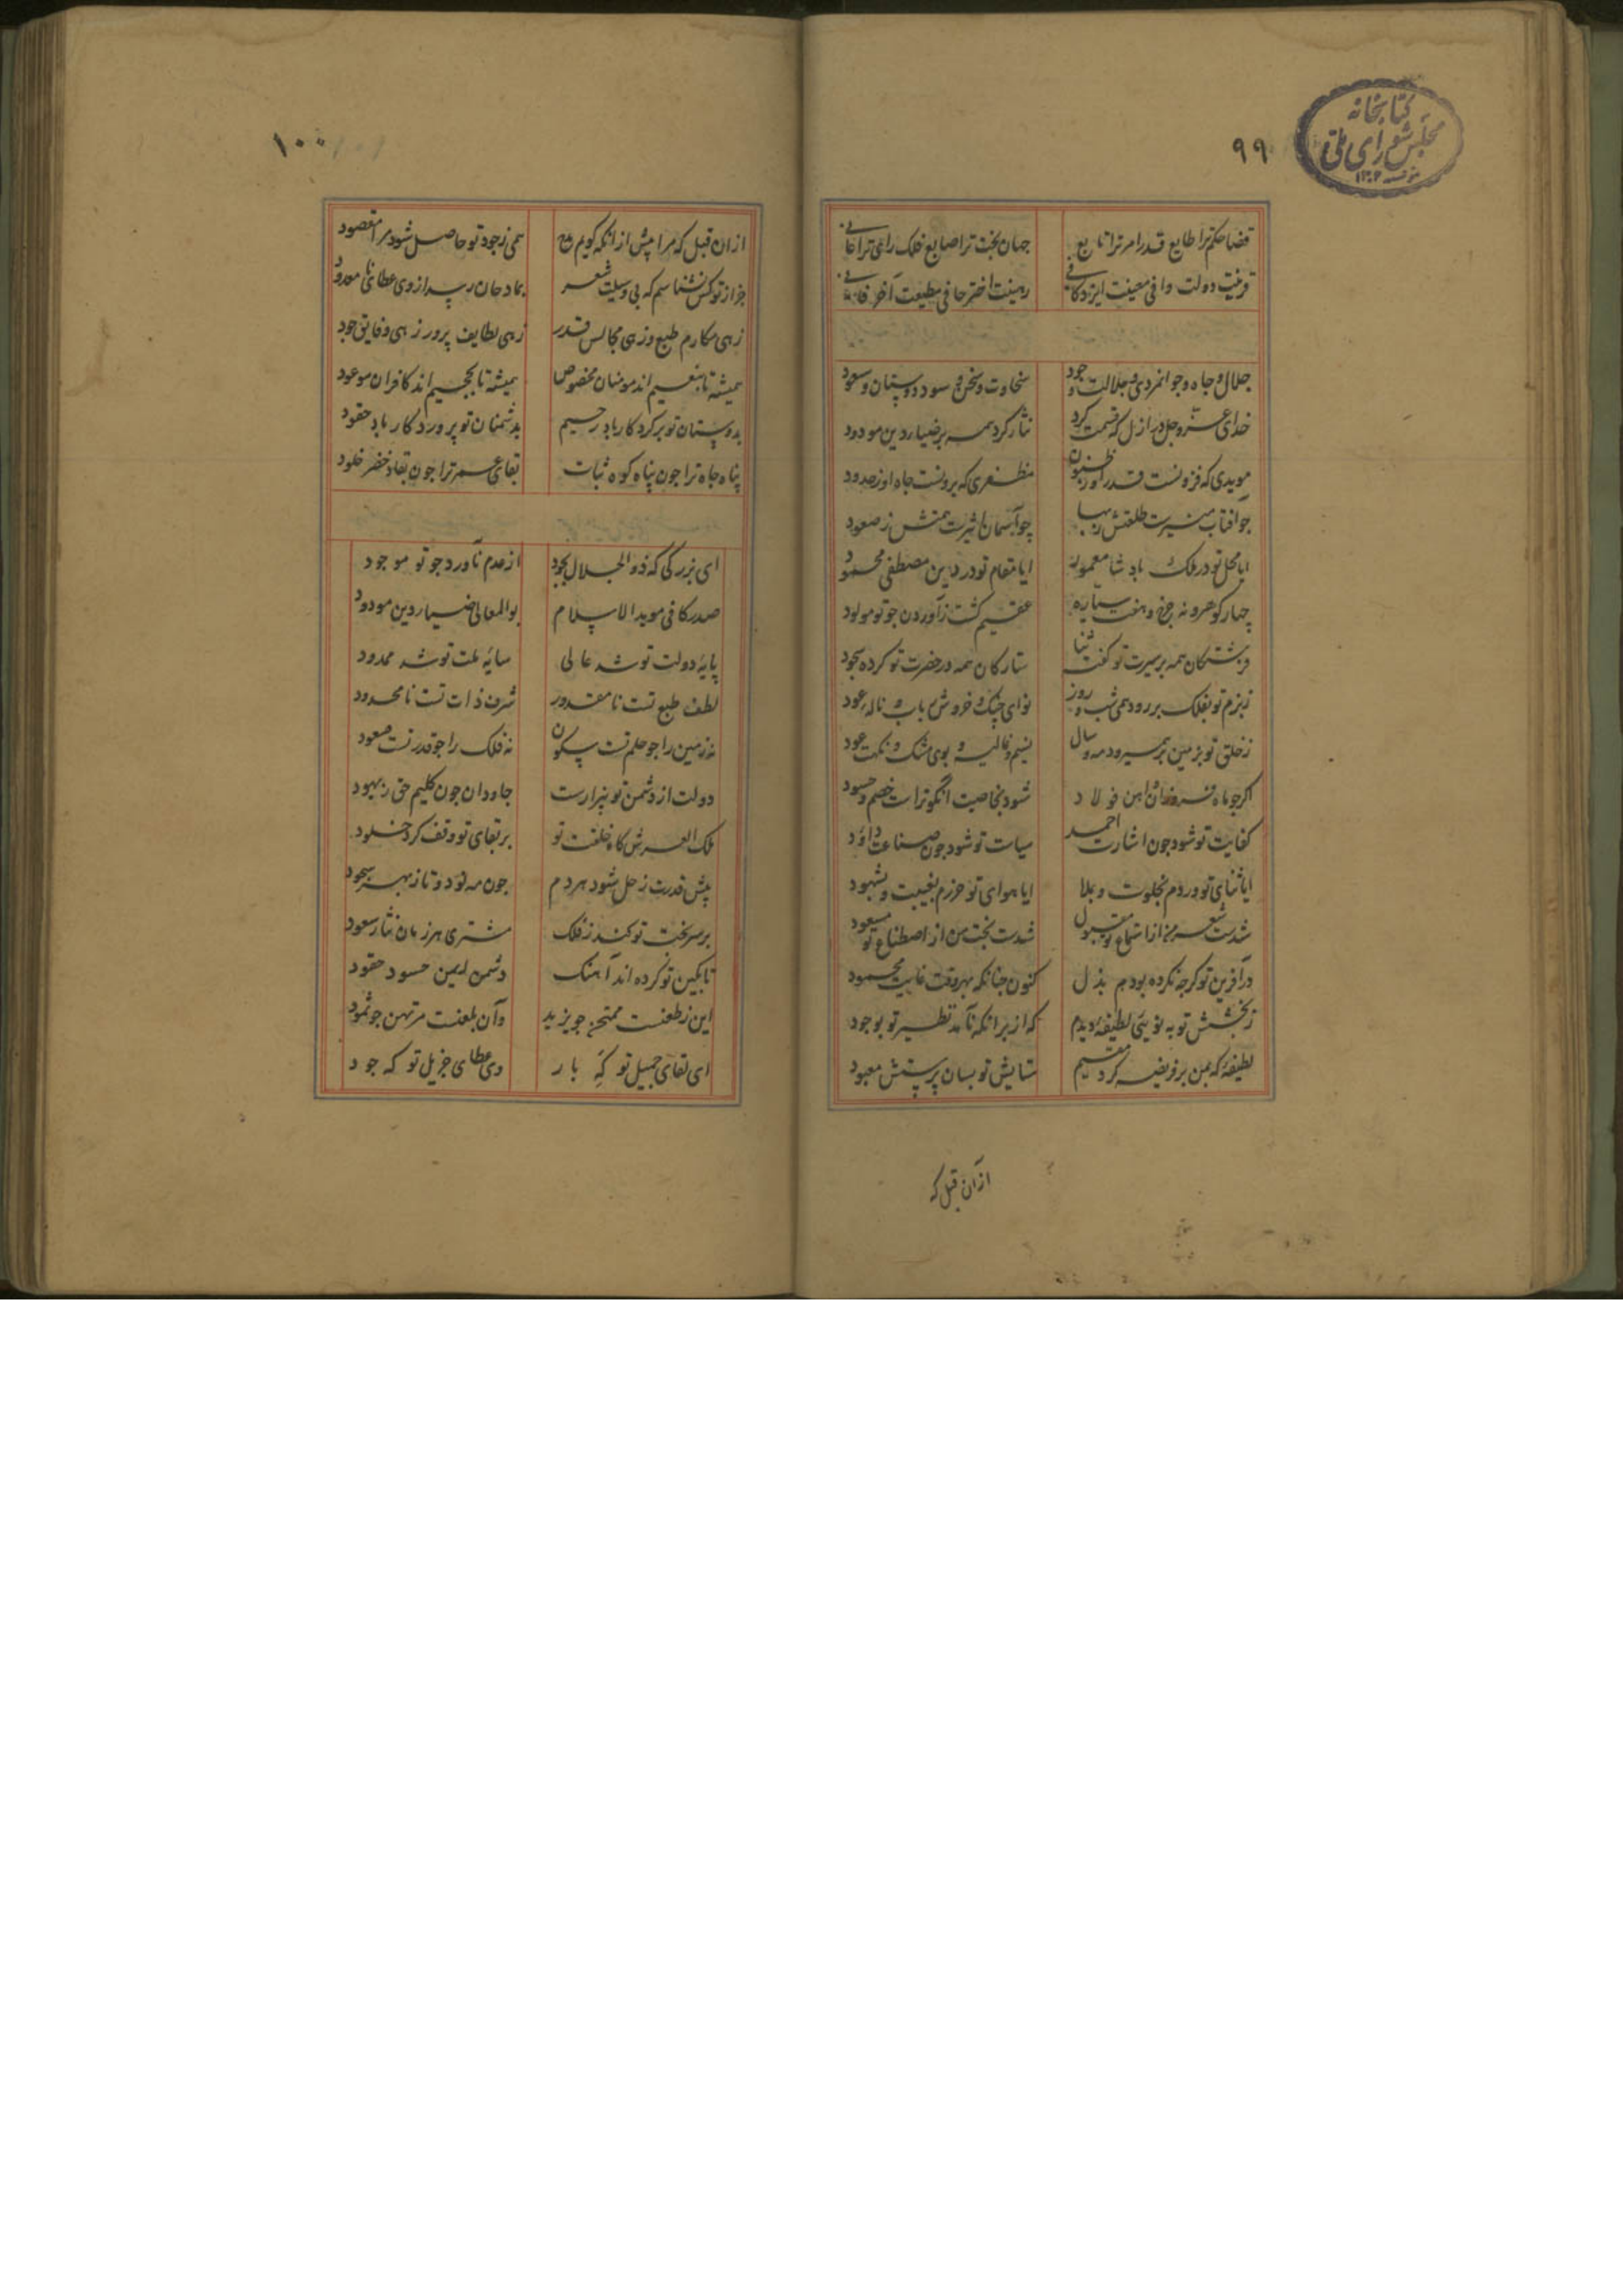 کتابخانه
مجلس شورای ملی
۹۹
قضا حکم ترا طایع قدر امر ترا تابع جهان بخت ترا صایع فلک رای ترا
قرینت دولت وافی معینت ایزد کافی رهینت اختر حافی مطیعت
جلال و جاه و جوانمردی و جلالت و جود سخاوت و سخن و سود دوستان و سعود
خدای عز و جل در ازل که قسمت کرد نثار کرد همه بر ضیاء دین مودود
مویدی که فزونست قدر او ز ظنون مظفری که برونست جاه او ز حدود
چو آفتاب منیرست طلعتش ز بها چو آسمان اثیرست همتش ز صعود
ایا محل تو در ملک پادشا معمور ایا مقام تو در دین مصطفی محمود
چهار کوهر و نه چرخ و هفت سیاره عقیم کشت ز آوردن چو تو مولود
فرشتکان همه بر سیرت تو کفته ثنا ستارکان همه در حضرت تو کرده سجود
ز بزم تو بفلک بر رود همی شب و روز نوای چنک و خروش رباب و ناله عود
ز خلق تو بزمین بر همیرود مه و سال نسیم و غالیه و بوی مشک و نکهت عود
اکر چو ماه فروزان و آهن فولاد شود بخاصیت آنکو تراست خصم و حسود
کفایت تو شود چون اشارت احمد سیاست تو شود چون صناعت داؤد
ایا ثنای تو وردم بخلوت و بملا ایا هوای تو حرزم بغیبت و شهود
شدست شعر من از استماع تو مقبول شدست بخت من از اصطناع تو مسعود
در آفرین تو کرچه نکرده بودم بذل کنون چنانکه بهر وقت غایت مجهود
ز بخشش تو به نویی لطیفهٔ دیدم که از بر آنکه نآمد نظیر تو بوجود
لطیفهٔ که بمن بر فریضه کرد مقیم ستایش تو بسان پرستش معبود
از آن قبل که
۱۰۰
از ان قبل که مرا پیش از آنکه کویم مدح همی ز جود تو حاصل شود مرا مقصود
جز از تو کس نشناسم که بی وسیلت شعر بمادحان رسد از وی عطای نامعدود
زهی مکارم طبع و زهی مجالس قدر زهی لطایف پرور زهی دقایق جود
همیشه تا بنعیم اند مومنان مخصوص همیشه تا بجحیم اند کافران موعود
بدوستان تو بر کردکار باد رحیم بدشمنان تو پروردکار باد حقود
پناه جاه ترا چون پناه کوه ثبات بقای عمر ترا چون بقاء خضر خلود
ای بزرکی که ذو الجلال بجود از عدم ناورد چو تو موجود
صدر کافی موید الاسلام بوالمعالی ضیاء دین مودود
پایهٔ دولت تو شد عالی سایهٔ ملت تو شد ممدود
لطف طبع تست نامقدور شرف ذات تست نامحدود
نه زمین را چو حلم تست سکون نه فلک را چو قدر تست صعود
دولت از دشمن تو بیزارست جاودان چون کلیم حق ز یهود
ملک العرش کاه خلقت تو بر بقای تو وقف کرد خلود
پیش قدرت زحل شود هر دم چون مه نو دو تا ز بهر سجود
بر سر بخت تو کند ز فلک مشتری هر زمان نثار سعود
تا بکین تو کرده اند آهنک دشمن لعین حسود حقود
این ز طعنست ممتحن چو یزید وآن بلعنت مرتهن چو ثمود
ای لقای جمیل تو که بار وی عطای جزیل تو که جود